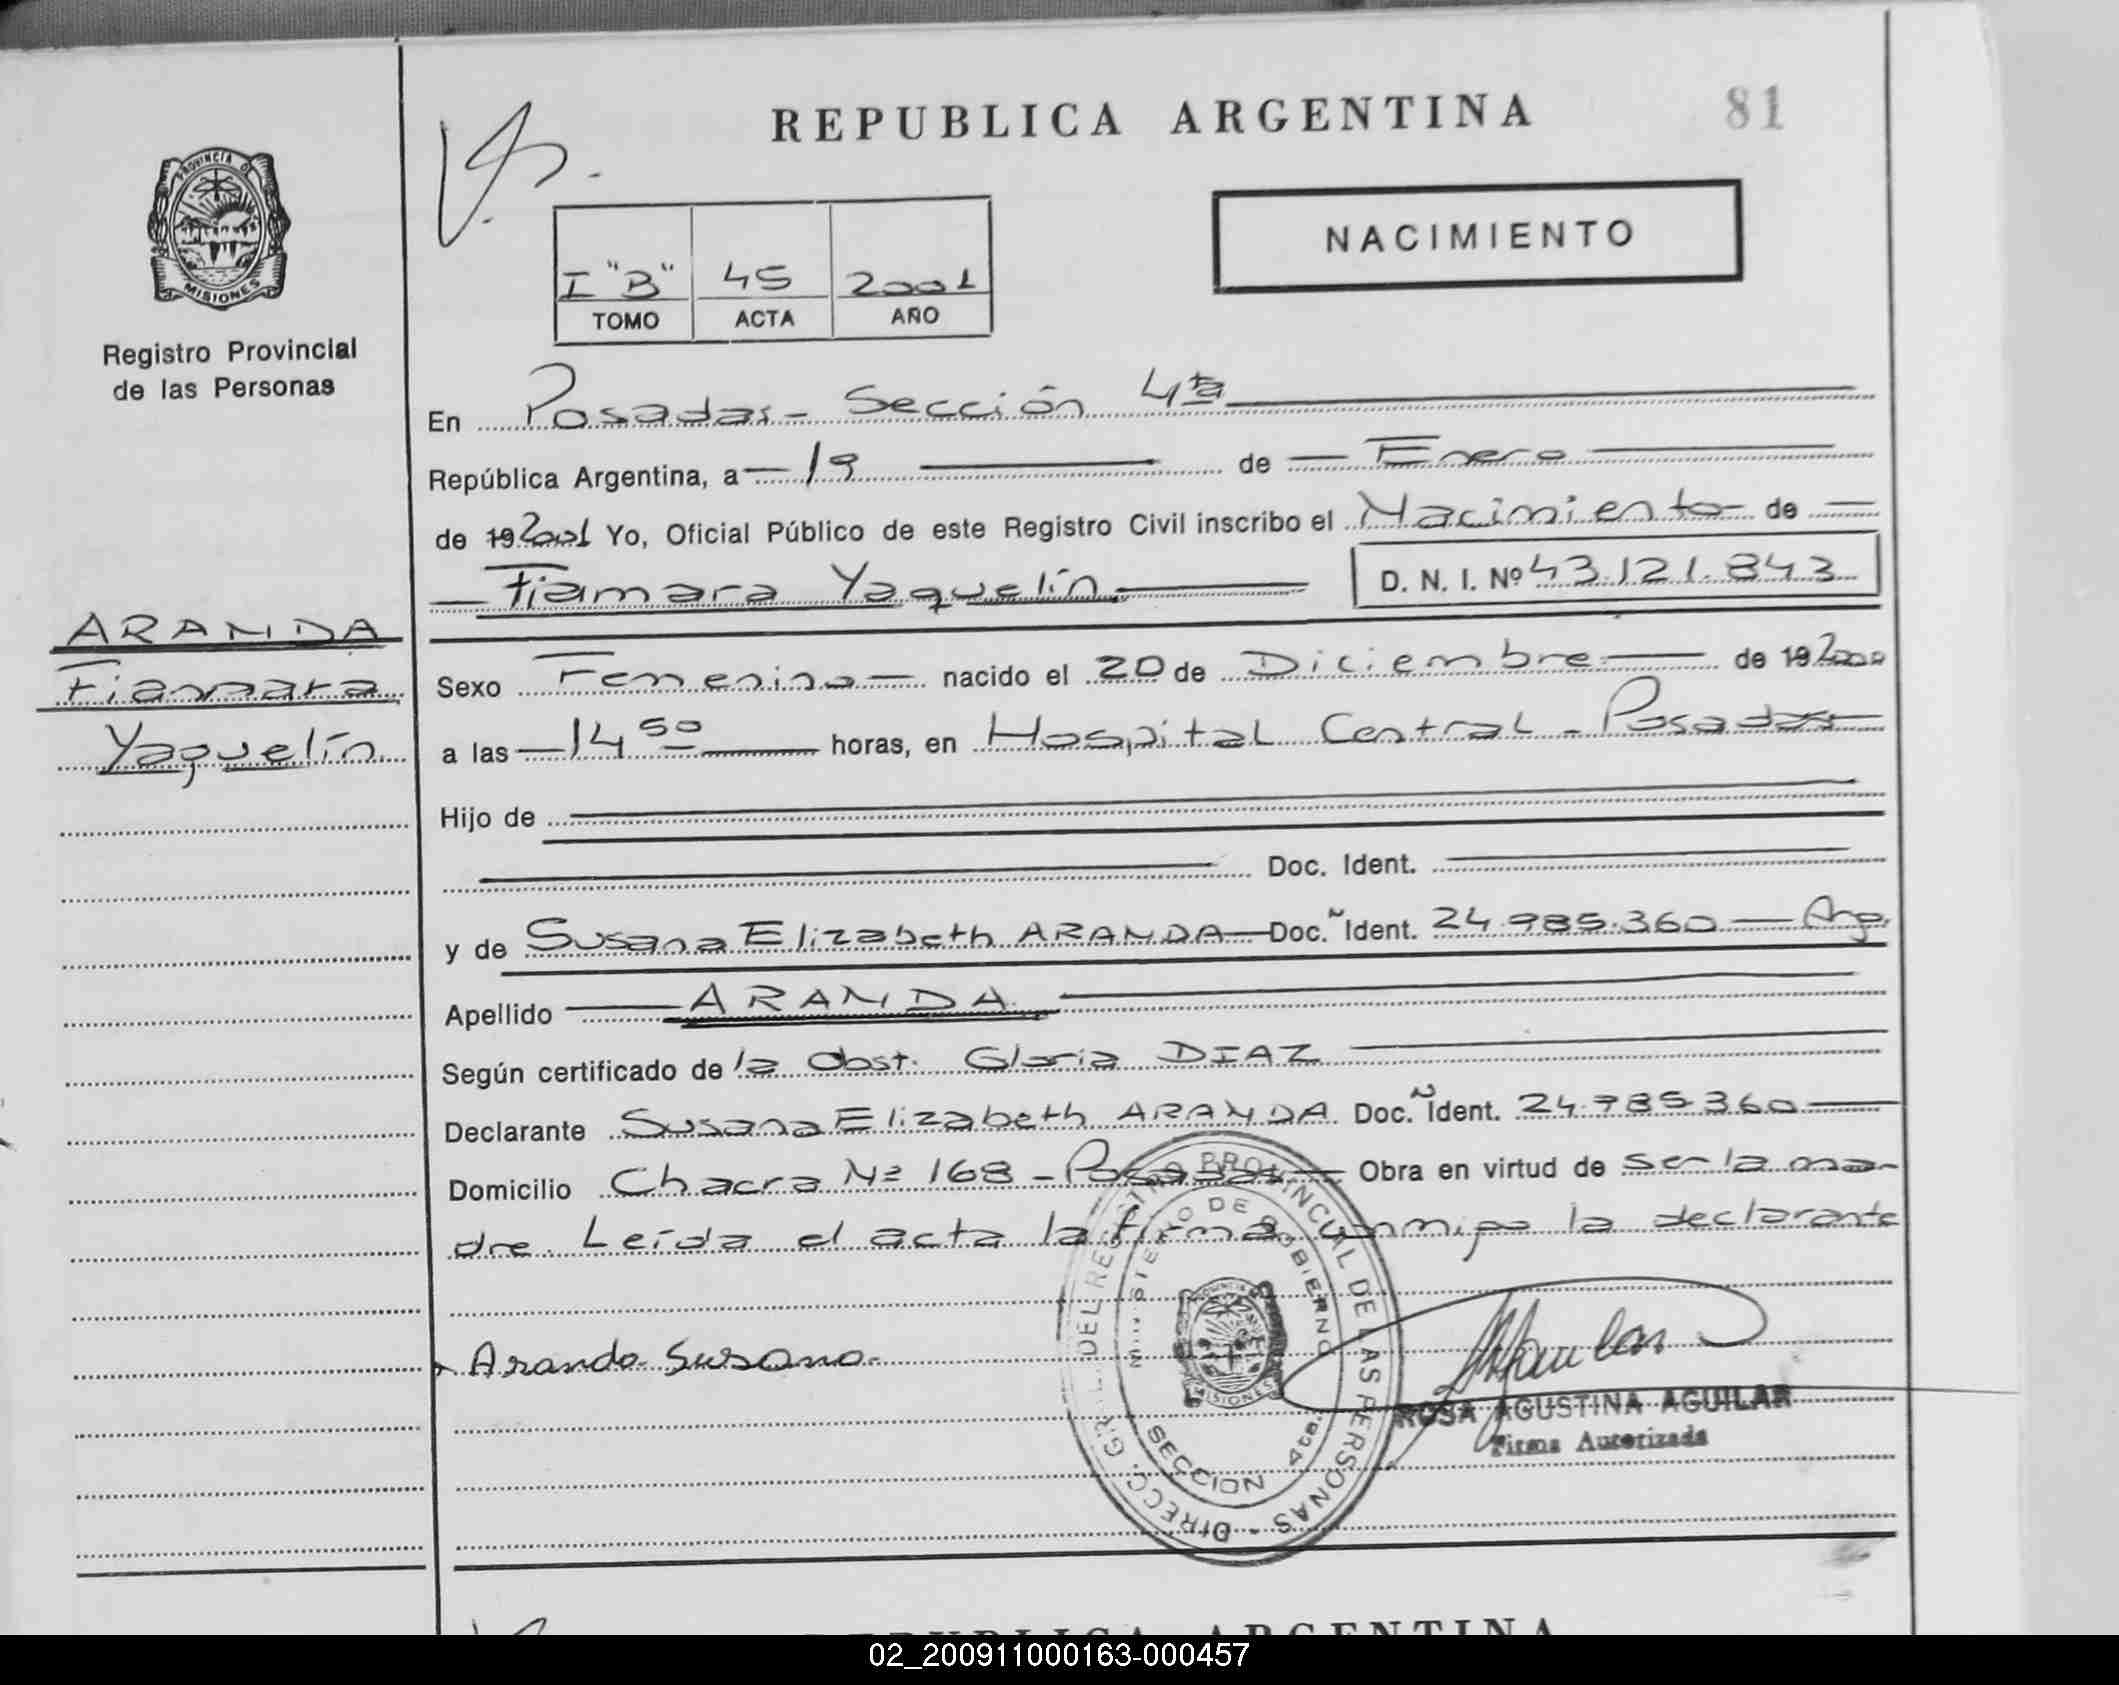 REPUBLICA ARGENTINA
81
PROVINCIA DE
MISIONES
Registro Provincial
de las Personas
NACIMIENTO
I "B" 45 2001
TOMO ACTA AÑO
En Posadas - Sección 4ta
República Argentina, a 19 de Enero
de 19 2001 Yo, Oficial Público de este Registro Civil inscribo el Nacimiento de
Fiamara Yaquelín. D. N. I. Nº 43.121.843
ARANDA
Fiamara
Yaquelín
Sexo Femenino nacido el 20 de Diciembre de 19 2000
a las 14 50 horas, en Hospital Central - Posadas
Hijo de
Doc. Ident.
y de Susana Elizabeth ARANDA Doc. Ident. 24.985.360 Arg.
Apellido ARANDA
Según certificado de la Obst. Gloria DIAZ
Declarante Susana Elizabeth ARANDA Doc. Ident. 24.985.360
Domicilio Chacra Nº 168 - Posadas Obra en virtud de ser la ma-
dre. Leída el acta la firma conmigo la declarante
Aranda Susana
DIRECC. GRAL. DEL REGISTRO PROVINCIAL DE LAS PERSONAS -
MINISTERIO DE GOBIERNO
SECCION 4ta.
MISIONES
ROSA AGUSTINA AGUILAR
Firma Autorizada
REPUBLICA ARGENTINA
02_200911000163-000457